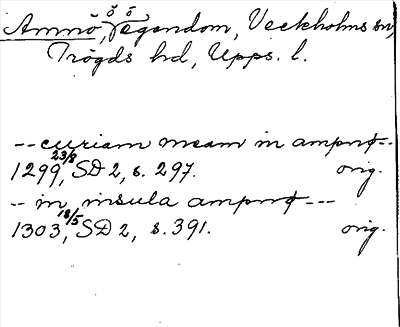 Ammö, ö o. ägendom, Veckholms sn,
Trögds hd, Upps. l.
-- curiam meam in ampnø --
1299 23/8, SD 2, s. 297. orig.
-- in insula ampnø ---
1303 18/5, SD 2, s. 391. orig.